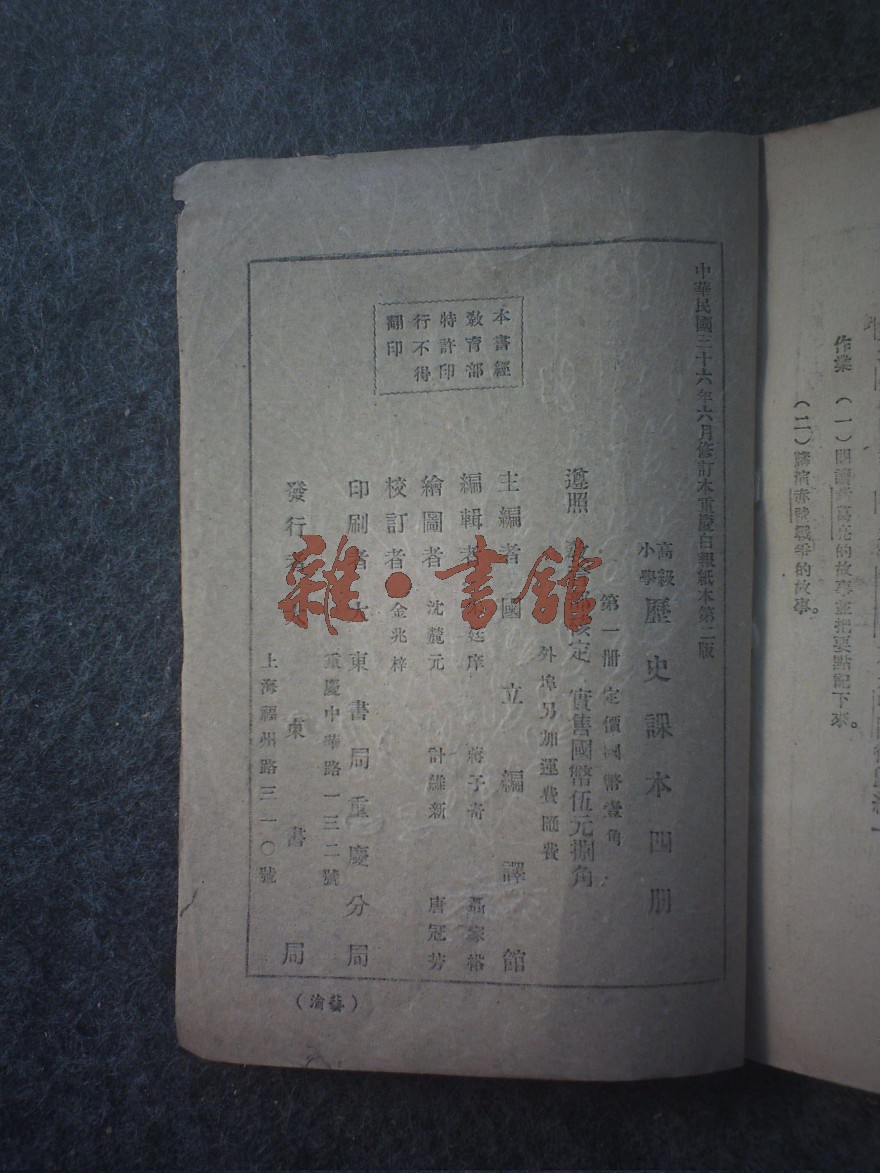 作業 (一)閱讀諸葛亮的故事並把要點記下來。
(二)講演赤壁戰爭的故事。
中華民國三十六年六月修訂本重慶白報紙本第二版
高級小學 歷史課本四册
第一册 定價國幣壹角
遵照 核定 實售國幣伍元捌角
外埠另加運費匯費
主編者 國立編譯館
編輯者 蔣子奇 聶家裕
繪圖者 沈麓元 計維新 唐冠芳
校訂者 金兆梓
印刷者 大東書局重慶分局
重慶中華路一三二號
發行者 大東書局
上海福州路三一〇號
本書經
教育部
特許印
行不得
翻印
(藝渝)
雜·書館